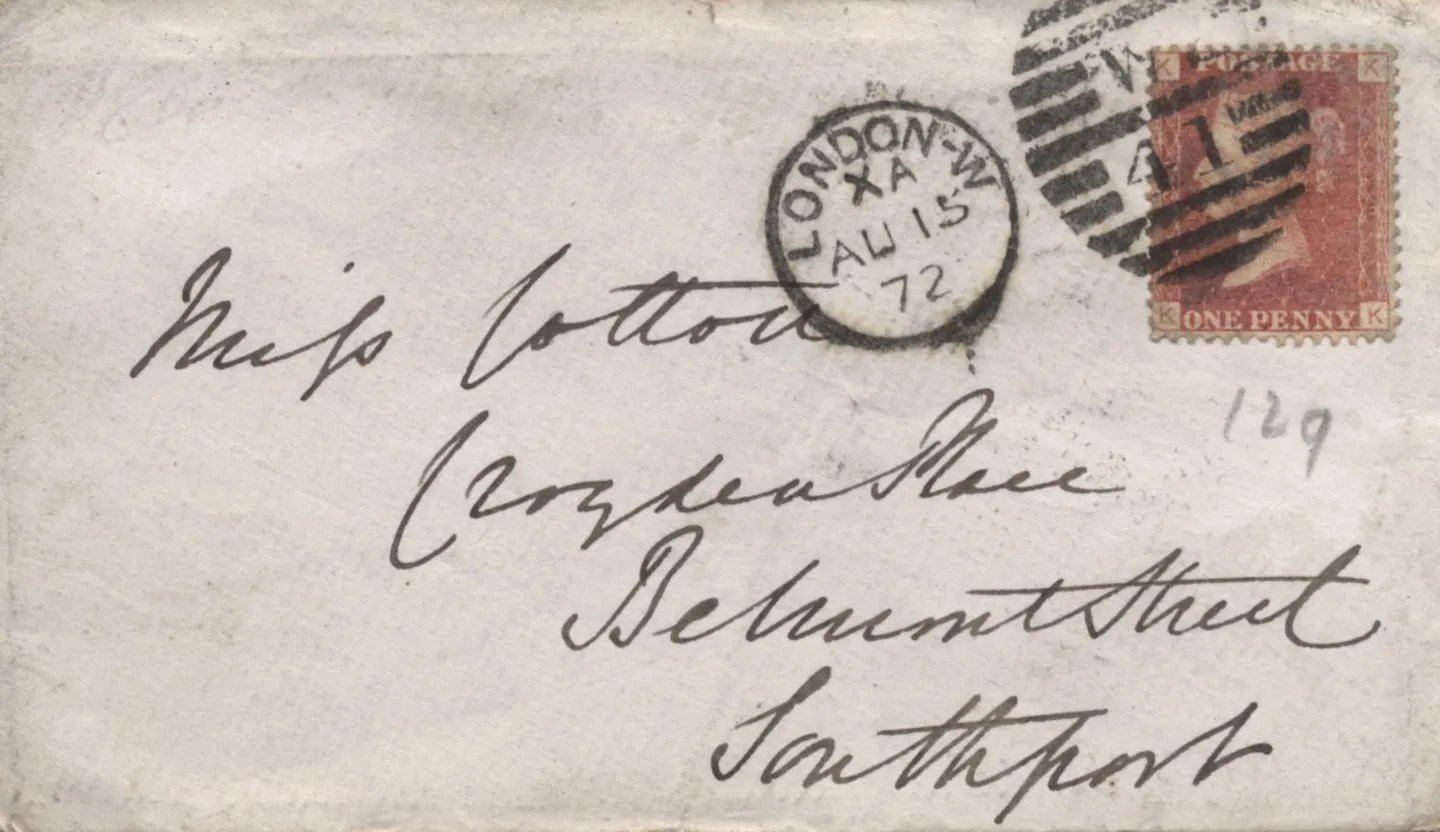 K POSTAGE K
W
41
LONDON-W
XA
AU 15
72
K ONE PENNY K
Miss Cotton
129
Croyden Place
Belmont Street
Southport